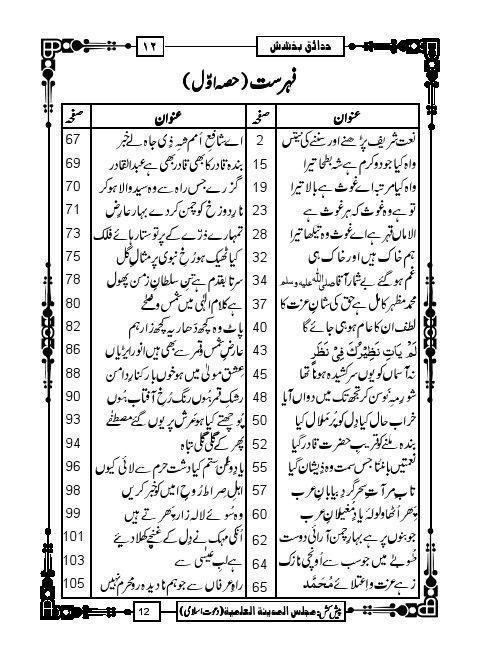 حدائقِ بخشش ۱۲
فہرست (حصہ اوّل)
عنوان صفحہ عنوان صفحہ
نعت شریف پڑھنے اور سننے کی نیتیں 2 اے شافعِ اُمم شہِ ذِی جاہ لے خبر 67
واہ کیا جود و کرم ہے شہِ بطحا تیرا 15 بندہ قادر کا بھی قادر بھی ہے عبدالقادر 69
واہ کیا مرتبہ اے غوث ہے بالا تیرا 19 گزرے جس راہ سے وہ سیدِ والا ہو کر 70
تو ہے وہ غوث کہ ہر غوث ہے 23 نارِ دوزخ کو چمن کردے بہارِ عارِض 71
الاماں قہر ہے اے غوث وہ تیکھا تیرا 28 تمہارے ذرّے کے پرتو ستارہائے فلک 73
ہم خاک ہیں اور خاک ہی 32 کیا ٹھیک ہو رُخِ نبوی پر مثالِ گل 75
غم ہوگئے بے شمار آقا صلی اللہ علیہ وسلم 34 سر تا بقدم ہے تن سلطانِ زمن پھول 78
محمد مظہرِ کامل ہے حق کی شانِ عزت کا 37 ہے کلامِ الٰہی میں شمس و ضحٰے 80
لطف اُن کا عام ہو ہی جائے گا 40 پاٹ وہ کچھ دَھار یہ کچھ زار ہم 82
لَمْ یَاتِ نَظِیْرُکَ فِیْ نَظَرٍ 43 عارضِ شمس و قمر سے بھی ہیں انور ایڑیاں 86
نہ آسمان کو یوں سرکشیدہ ہونا تھا 45 عشقِ مولیٰ میں ہو خوں بار کنارِ دامن 88
شورِ مہِ نو سن کر تجھ تک میں دَواں آیا 48 رشکِ قمر ہوں رنگِ رُخِ آفتاب ہوں 90
خراب حال کیا دِل کو پُر مَلال کیا 50 پوچھتے کیا ہو عرش پر یوں گئے مصطفٰے 93
بندہ ملنے کو قریبِ حضرتِ قادر گیا 52 پھر کے گلی گلی تباہ 94
نعمتیں بانٹتا جس سمت وہ ذِیشان گیا 55 یادِ وطن ستم کیا دشتِ حرم سے لائی کیوں 96
تابِ مرآتِ سحر گردِ بیابانِ عرب 57 اہلِ صراط رُوحِ امیں کو خبر کریں 98
پھر اُٹھا ولولۂ یادِ مُغیلانِ عرب 60 وہ سوئے لالہ زار پھرتے ہیں 99
جوبنوں پر ہے بہارِ چمن آرائیِ دوست 62 اُنکی مہک نے دِل کے غنچے کِھلا دیئے 101
طوبیٰ میں جو سب سے اُونچی نازک 64 ہے لبِ عیسیٰ سے 103
زہے عزت و اِعتلائے مُحَمَّد 65 راہِ عرفاں سے جو ہم نادیدہ رو محرم نہیں 105
پیش کش: مجلس المدینۃ العلمیۃ (دعوتِ اسلامی) 12